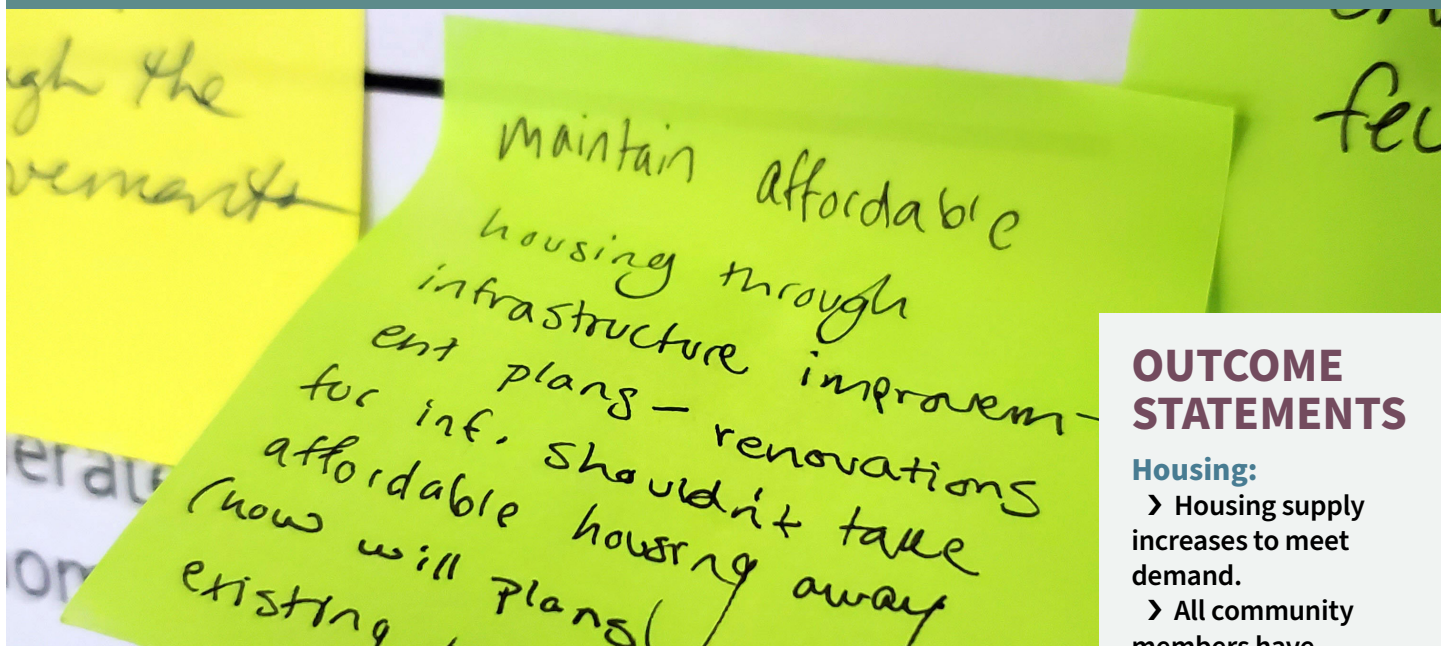 gh the
vements
maintain affordable
housing through
infrastructure improvem-
ent plans – renovations
for inf. shouldn't take
affordable housing away
(how will plans
existing
erate
om
feu
OUTCOME
STATEMENTS
Housing:
❯ Housing supply
increases to meet
demand.
❯ All community
members have